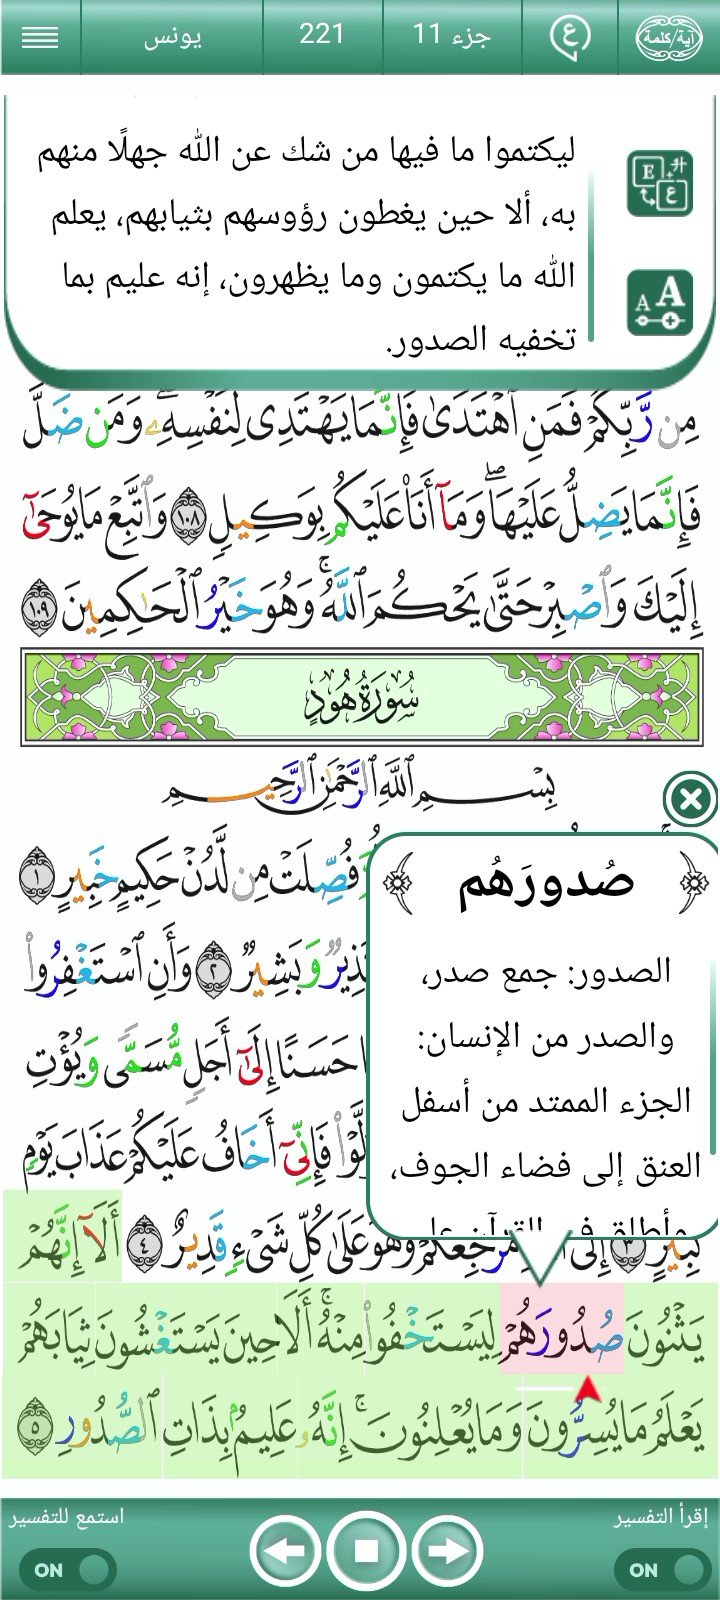 آية/كلمة
ع
جزء 11
221
يونس
ليكتموا ما فيها من شك عن الله جهلًا منهم
به، ألا حين يغطون رؤوسهم بثيابهم، يعلم
الله ما يكتمون وما يظهرون، إنه عليم بما
تخفيه الصدور.
مِن رَّبِّكُمْ فَمَنِ ٱهْتَدَىٰ فَإِنَّمَا يَهْتَدِى لِنَفْسِهِۦ وَمَن ضَلَّ
فَإِنَّمَا يَضِلُّ عَلَيْهَا وَمَآ أَنَا۠ عَلَيْكُم بِوَكِيلٍ ١٠٨ وَٱتَّبِعْ مَا يُوحَىٰٓ
إِلَيْكَ وَٱصْبِرْ حَتَّىٰ يَحْكُمَ ٱللَّهُ ۚ وَهُوَ خَيْرُ ٱلْحَـٰكِمِينَ ١٠٩
سُورَةُ هُودٍ
بِسْمِ ٱللَّهِ ٱلرَّحْمَـٰنِ ٱلرَّحِيمِ
فُصِّلَتْ مِن لَّدُنْ حَكِيمٍ خَبِيرٍ ١
نَذِيرٌ وَبَشِيرٌ ٢ وَأَنِ ٱسْتَغْفِرُوا۟
حَسَنًا إِلَىٰٓ أَجَلٍ مُّسَمًّى وَيُؤْتِ
فَإِنِّىٓ أَخَافُ عَلَيْكُمْ عَذَابَ يَوْمٍ
كَبِيرٍ ٣ إِلَى مَرْجِعُكُمْ وَهُوَ عَلَىٰ كُلِّ شَىْءٍ قَدِيرٌ ٤ أَلَآ إِنَّهُمْ
يَثْنُونَ صُدُورَهُمْ لِيَسْتَخْفُوا۟ مِنْهُ ۚ أَلَا حِينَ يَسْتَغْشُونَ ثِيَابَهُمْ
يَعْلَمُ مَا يُسِرُّونَ وَمَا يُعْلِنُونَ ۚ إِنَّهُۥ عَلِيمٌۢ بِذَاتِ ٱلصُّدُورِ ٥
صُدورَهُم
الصدور: جمع صدر،
والصدر من الإنسان:
الجزء الممتد من أسفل
العنق إلى فضاء الجوف،
إقرأ التفسير
ON
استمع للتفسير
ON